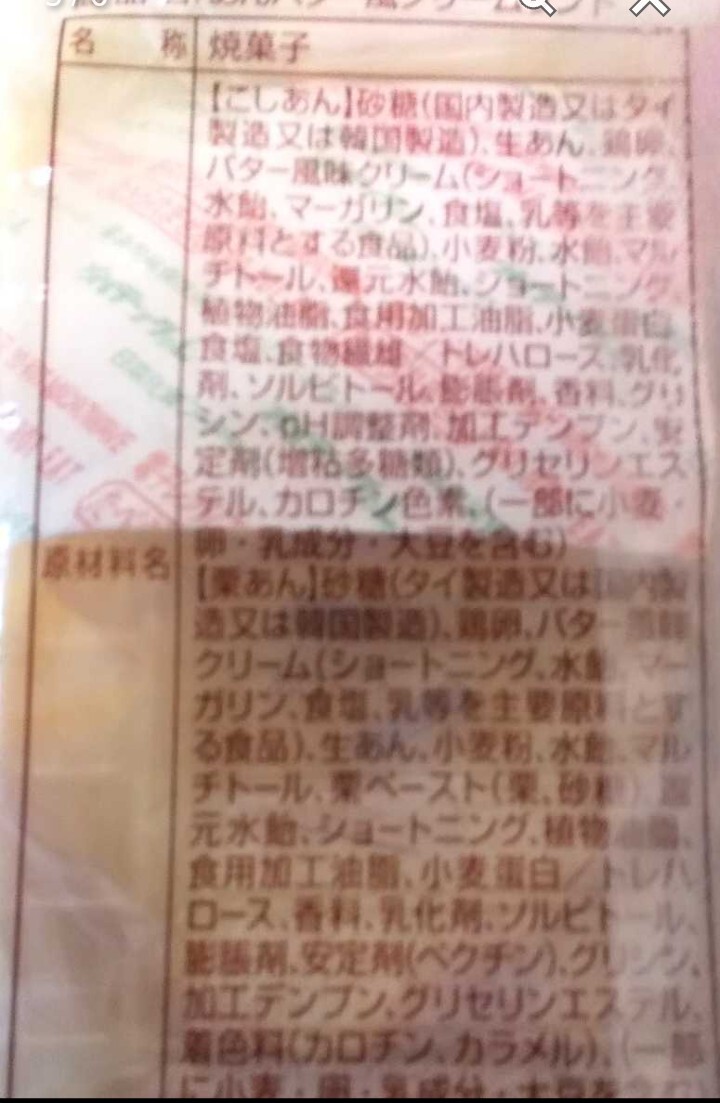 名　称 焼菓子
原材料名
【こしあん】砂糖(国内製造又はタイ
製造又は韓国製造)、生あん、鶏卵、
バター風味クリーム(ショートニング、
水飴、マーガリン、食塩、乳等を主要
原料とする食品)、小麦粉、水飴、マル
チトール、還元水飴、ショートニング、
植物油脂、食用加工油脂、小麦蛋白、
食塩、食物繊維／トレハロース、乳化
剤、ソルビトール、膨脹剤、香料、グリ
シン、pH調整剤、加工デンプン、安
定剤(増粘多糖類)、グリセリンエス
テル、カロチン色素、(一部に小麦・
卵・乳成分・大豆を含む)
【栗あん】砂糖(タイ製造又は国内製
造又は韓国製造)、鶏卵、バター風味
クリーム(ショートニング、水飴、マー
ガリン、食塩、乳等を主要原料とす
る食品)、生あん、小麦粉、水飴、マル
チトール、栗ペースト(栗、砂糖)、還
元水飴、ショートニング、植物油脂、
食用加工油脂、小麦蛋白／トレハ
ロース、香料、乳化剤、ソルビトール、
膨脹剤、安定剤(ペクチン)、グリシン、
加工デンプン、グリセリンエステル、
着色料(カロチン、カラメル)、(一部
に小麦・卵・乳成分・大豆を含む)